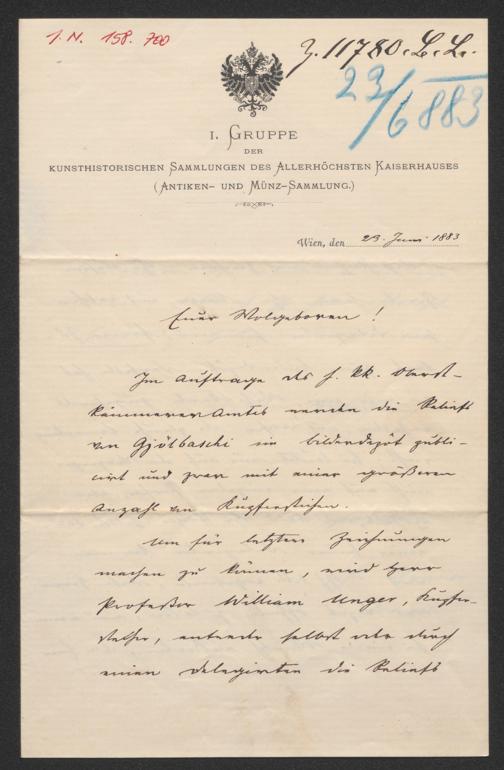 I. N. 158.700
Z. 11780
23/6 883
I. GRUPPE
DER
KUNSTHISTORISCHEN SAMMLUNGEN DES ALLERHÖCHSTEN KAISERHAUSES
(ANTIKEN- UND MÜNZ-SAMMLUNG.)
Wien, den 23. Juni 1883
Euer Wolgeboren!
Im Auftrage des h. kk. Oberst-
kämmerer Amtes werden die Reliefs
von Gjölbaschi im Bilderdepôt publi-
cirt und zwar mit einer größeren
Anzahl von Kupferstichen.
Um für letztere Zeichnungen
machen zu können, wird Herr
Professor William Unger, Kupfer-
stecher, entweder selbst oder durch
einen Delegirten die Reliefs